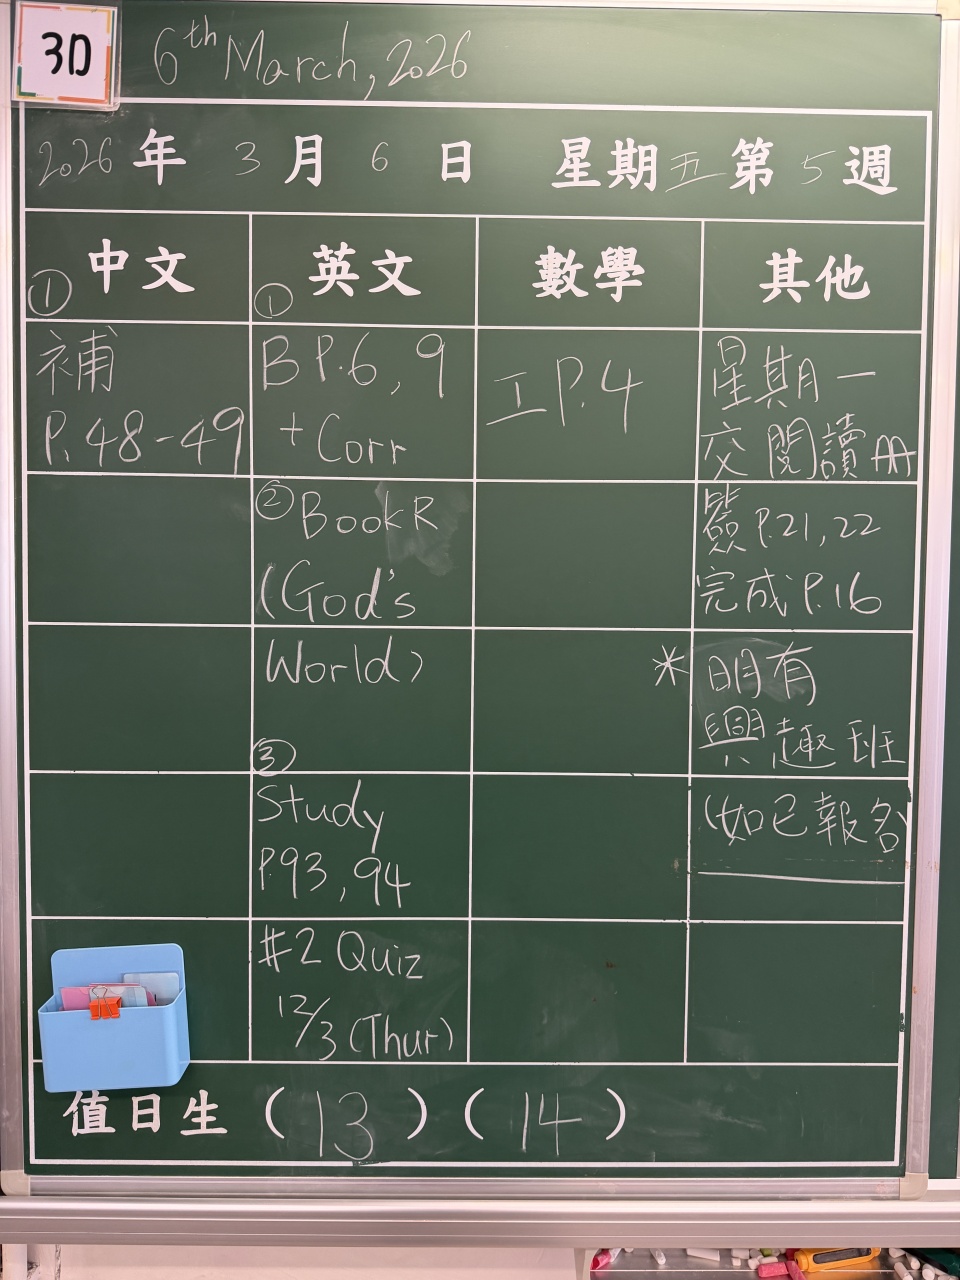 3D
6th March, 2026
2026 年 3 月 6 日 星期五 第 5 週
中文
①
補
P.48-49
英文
①
B P.6, 9
+ Corr
② Book R
(God's
World)
③
Study
P.93, 94
#2 Quiz
12/3 (Thur)
數學
工 P.4
其他
星期一
交 閱讀冊
簽 P.21, 22
完成 P.16
* 明有
興趣班
(如已報名)
值日生 ( 13 ) ( 14 )